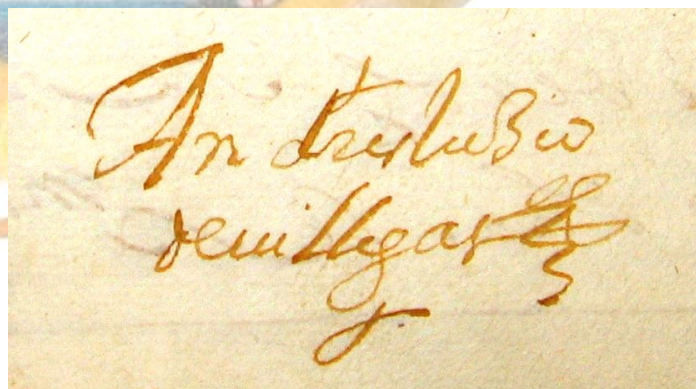 Andres luBio
de uillegas